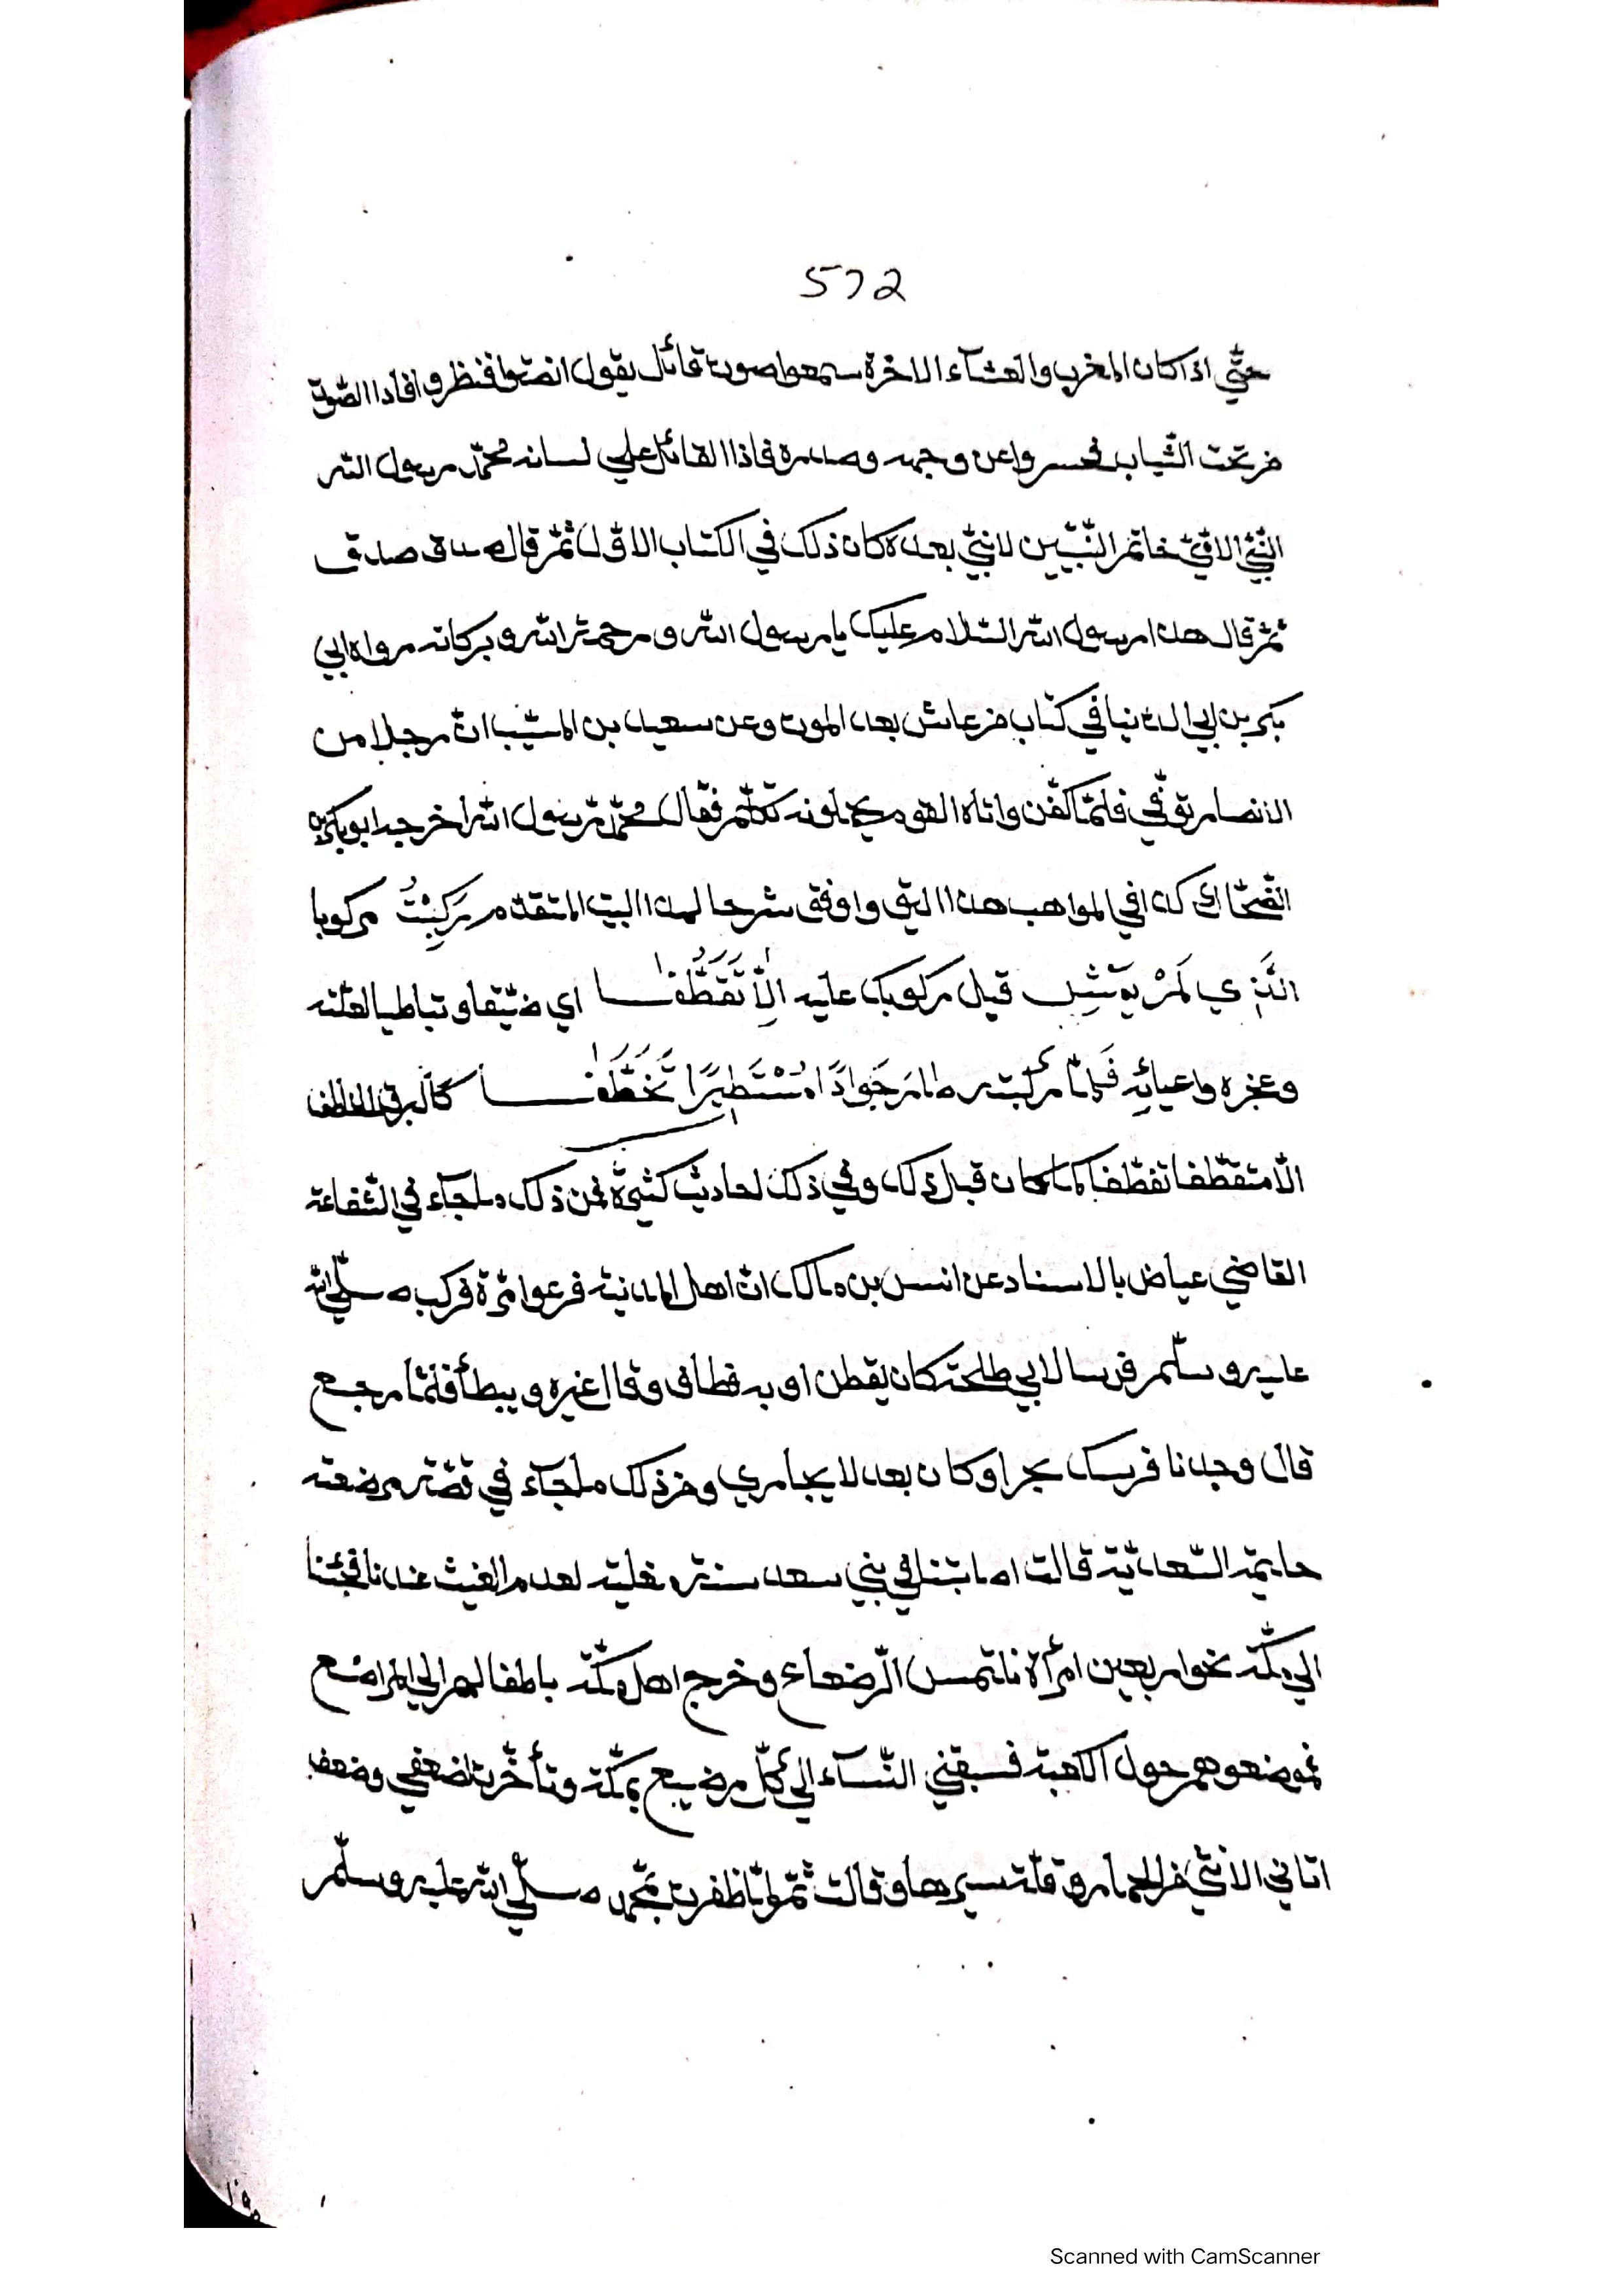 572
حتّي اذا كان المغرب والعشآء الاخرة سمعوا صوت قائل يقول انصتوا فنظروا فاذا الصّوت
من تحت الثّياب فحسروا عن وجهه وصدره فاذا القائل علي لسانه محمّد رسول الله
النّبيّ الامّيّ خاتم النّبيّين لا نبيّ بعده كان ذلك في الكتاب الاوّل ثمّ قال صدق صدق
ثمّ قال هذا رسول الله السّلام عليك يا رسول الله ورحمة الله وبركاته رواه ابي
بكر بن ابي الدّنيا في كتاب من عاش بعد الموت وعن سعيد بن المسيّب انّ رجلا من
الانصار توفّي فلمّا كفّن واتاه القوم يحملونه تكلّم فقال محمّد رسول الله اخرجه ابو بكر بن
الضّحّاك كذا في المواهب هذا اليق واوفق شرحا لهذا البيت المتقدّم رَكِبْتُ مركوبا
الَّذِي لَمْ يَمْشِ قبل ركوبك عليه اِلَّا تَقَطُّفَا اي ضيّقا وتباطيا لعلّته
وعجزه واعيائه فَلَمَّا رَكِبْتَ صار جَوَادًا مُسْتَطِيرًا تَخَطَّفَا كالبرق الخاطف
الّا متقطّفا تقطّفا كما كان قبل ذلك وفي ذلك احاديث كثيرة فمن ذلك ما جآء في الشّفاء عن
القاضي عياض بالاسناد عن انس بن مالك انّ اهل المدينة فزعوا مرّة فركب صلّي الله
عليه وسلّم فرسا لابي طلحة كان يقطف او به قطاف وقال غيره ويبطأ فلمّا رجع
قال وجدنا فرسك بحرا وكان بعد لا يجاري ومن ذلك ما جآء في قصّة مرضعته
حليمة السّعديّة قالت اصابتنا في بني سعد سنة لعدم الغيث عندنا فجئنا
الي مكّة نحو اربعين امرأة نلتمس الرّضعاء وخرج اهل مكّة باطفالهم الي المراضع
ثم وضعوهم حول الكعبة فسبقني النّسآء الي كلّ مرضيع بمكّة وتأخّرت لضعفي وضعف
اتاني الانثي من الحمار وقلّة سيرها وقالت ثمّ لمّا ظفرت بمحمّد صلّي الله عليه وسلّم
Scanned with CamScanner